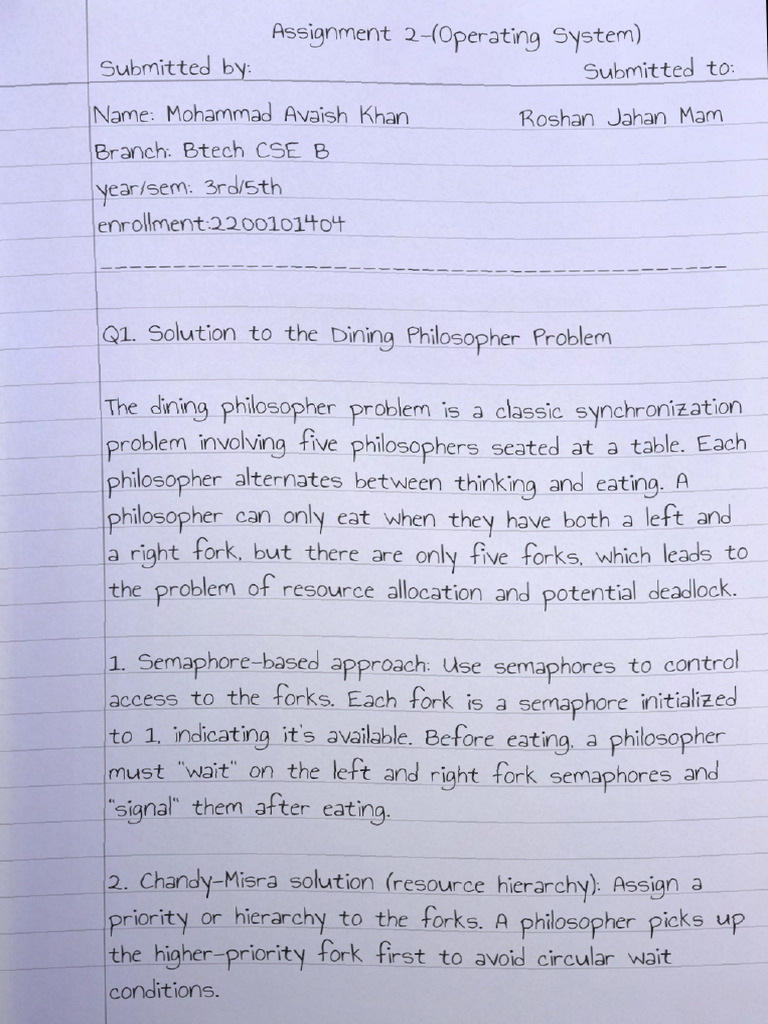 Assignment 2-(Operating System)
Submitted by: Submitted to:
Name: Mohammad Avaish Khan Roshan Jahan Mam
Branch: Btech CSE B
year/sem: 3rd/5th
enrollment:2200101404
--------------------------------------------------
Q1. Solution to the Dining Philosopher Problem
The dining philosopher problem is a classic synchronization
problem involving five philosophers seated at a table. Each
philosopher alternates between thinking and eating. A
philosopher can only eat when they have both a left and
a right fork, but there are only five forks, which leads to
the problem of resource allocation and potential deadlock.
1. Semaphore-based approach: Use semaphores to control
access to the forks. Each fork is a semaphore initialized
to 1, indicating it's available. Before eating, a philosopher
must "wait" on the left and right fork semaphores and
"signal" them after eating.
2. Chandy-Misra solution (resource hierarchy): Assign a
priority or hierarchy to the forks. A philosopher picks up
the higher-priority fork first to avoid circular wait
conditions.